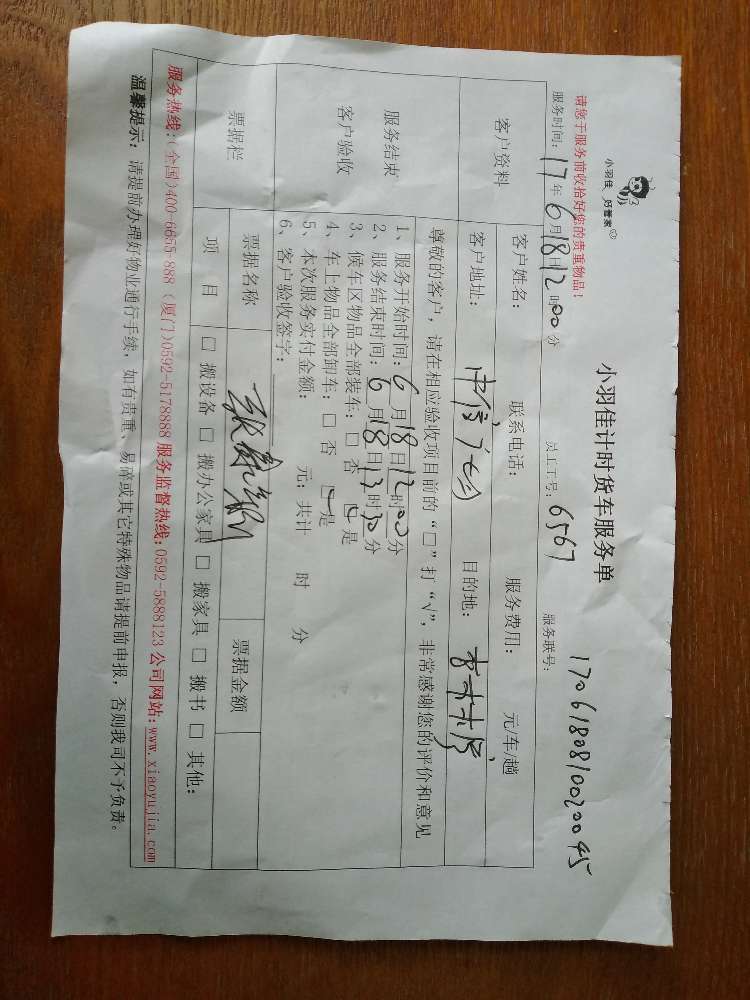 小羽佳 好管家
小羽佳计时货车服务单
请您于服务前收拾好您的贵重物品！
服务时间：17年6月18日12时00分 员工工号：6567 服务联号：1706180810020045
客户资料
客户姓名： 联系电话： 服务费用： 元/车/趟
客户地址：中信广场 目的地：
服务结束
客户验收
尊敬的客户，请在相应验收项目前的“□”打“√”，非常感谢您的评价和意见
1、服务开始时间：6月18日12时00分
2、服务结束时间：6月18日13时30分
3、候车区物品全部装车：□ 否 □ 是
4、车上物品全部卸车：□ 否 □ 是
5、本次服务实付金额： 元；共计 时 分
6、客户验收签字：
票据栏
票据名称 票据金额
项 目 □ 搬设备 □ 搬办公家具 □ 搬家具 □ 搬书 □ 其他：
服务热线：(全国)400-6655-888 (厦门)0592-5178888 服务监督热线：0592-5888123 公司网站：www.xiaoyujia.com
温馨提示： 请提前办理好物业通行手续，如有贵重、易碎或其它特殊物品请提前申报，否则我司不予负责。